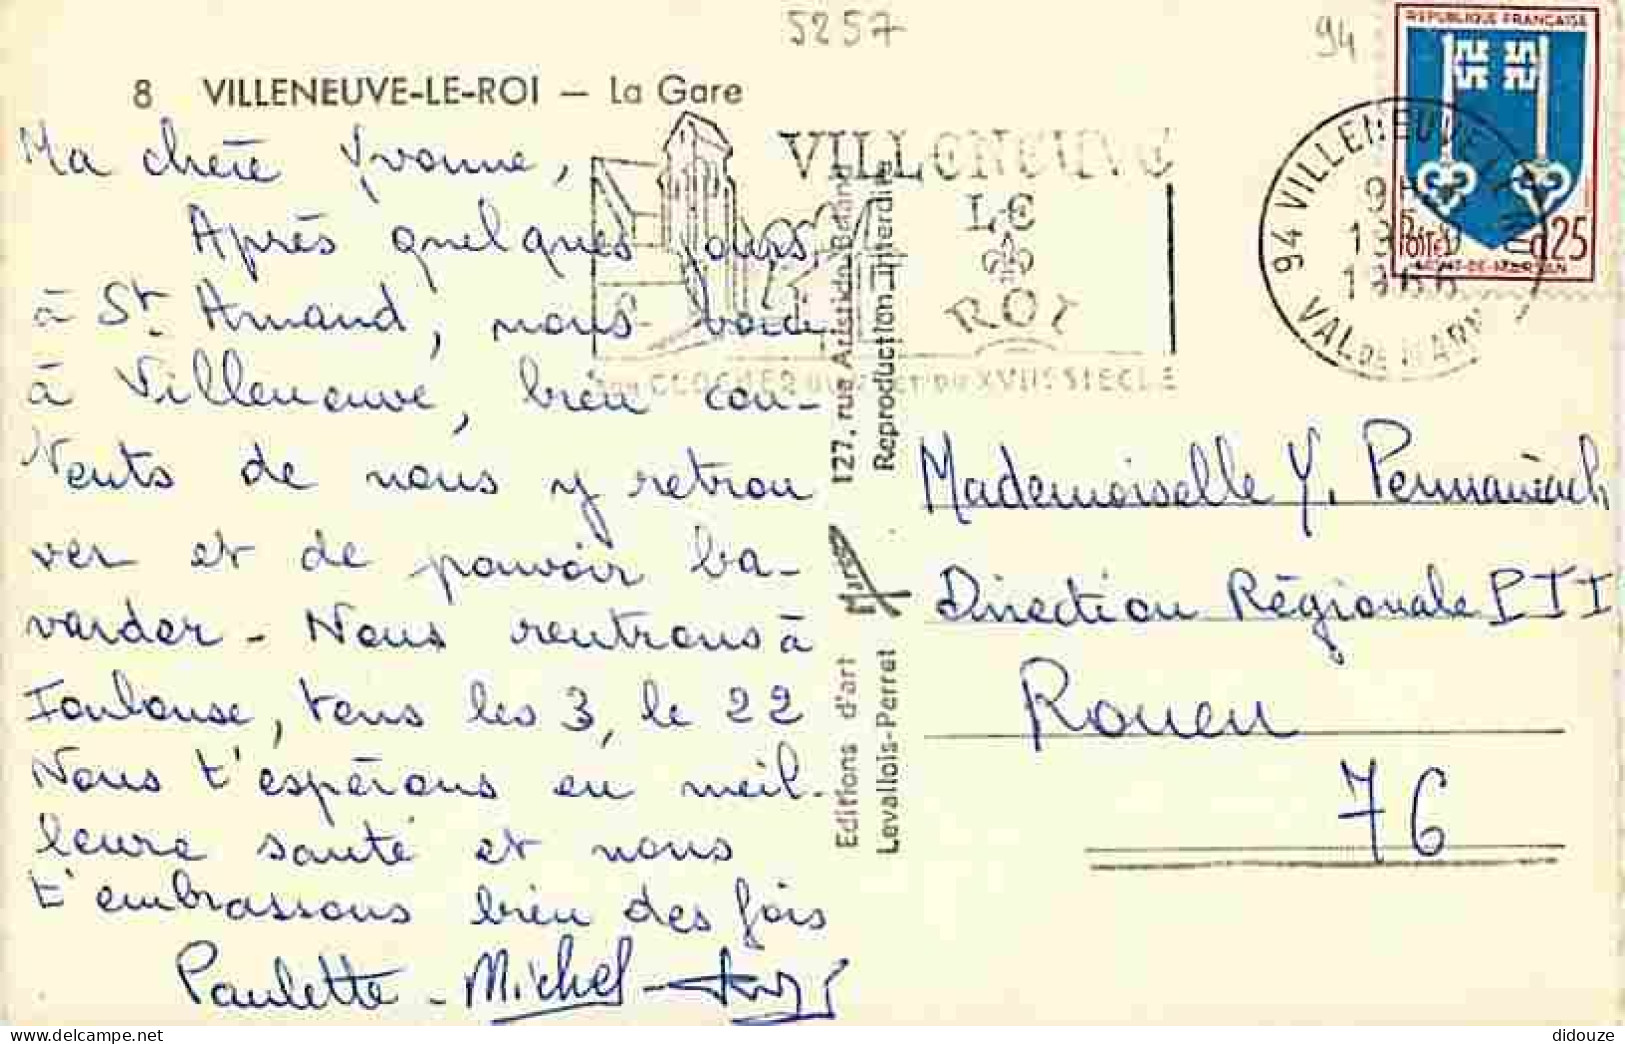 5257
94
8 VILLENEUVE-LE-ROI — La Gare
Ma chère Yvonne,
Après quelques jours
à St Amand, nous voici
à Villeneuve, bien con-
tents de nous y retrou
ver et de pouvoir ba-
varder - Nous rentrons à
Toulouse, tous les 3, le 22
Nous t'espérons en meil-
leure santé et nous
t'embrassons bien des fois
Paulette - Michel -
VILLENEUVE
LE
ROI
SON CLOCHER DU XVIIe SIECLE
127, rue Aristide-Briand
Reproduction interdite
Editions d'art
Levallois-Perret
REPUBLIQUE FRANÇAISE
POSTES 0,25
MONT-DE-MARSAN
94 VILLENEUVE LE ROI
1966
VAL DE MARNE
Mademoiselle Y.
Direction Régionale PTT
Rouen
76
didouze